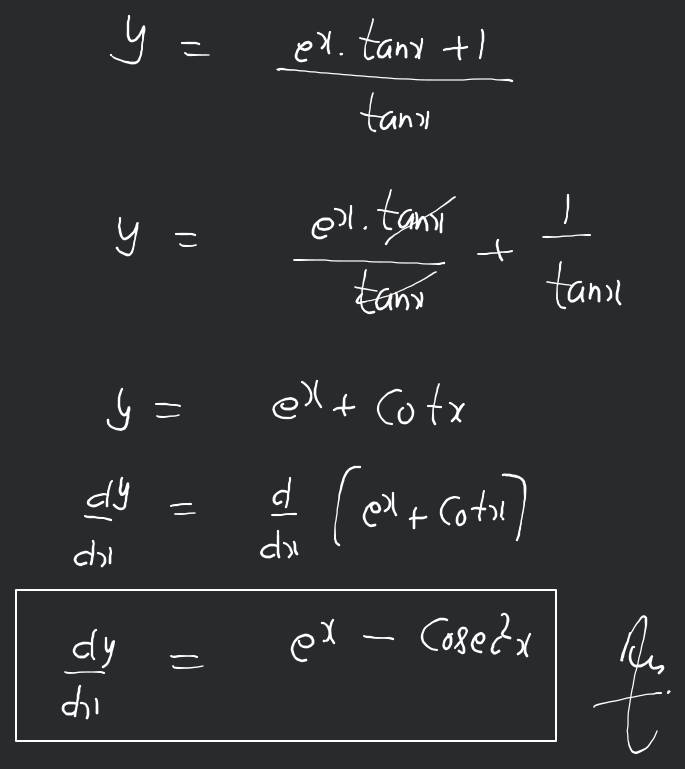 y = (e^x . tanx + 1) / tanx
y = (e^x . tanx) / tanx + 1 / tanx
y = e^x + Cotx
dy/dx = d/dx (e^x + Cotx)
dy/dx = e^x − Cosec²x Ans.